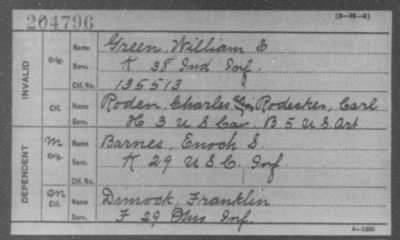 204796
(3-25-4)
INVALID
Orig. Name Green, William E
Serv. K 38 Ind Inf.
Ctf. No. 135513
Ctf. Name Roden, Charles Rodeckes, Carl
Serv. H 3 U S Cav. B 5 U.S. Art
DEPENDENT
M Orig. Name Barnes, Enoch S.
Serv. K 29 U.S.C. Inf
Ctf. No.
M Ctf. Name Dimock, Franklin
Serv. F 29 Ohio Inf.